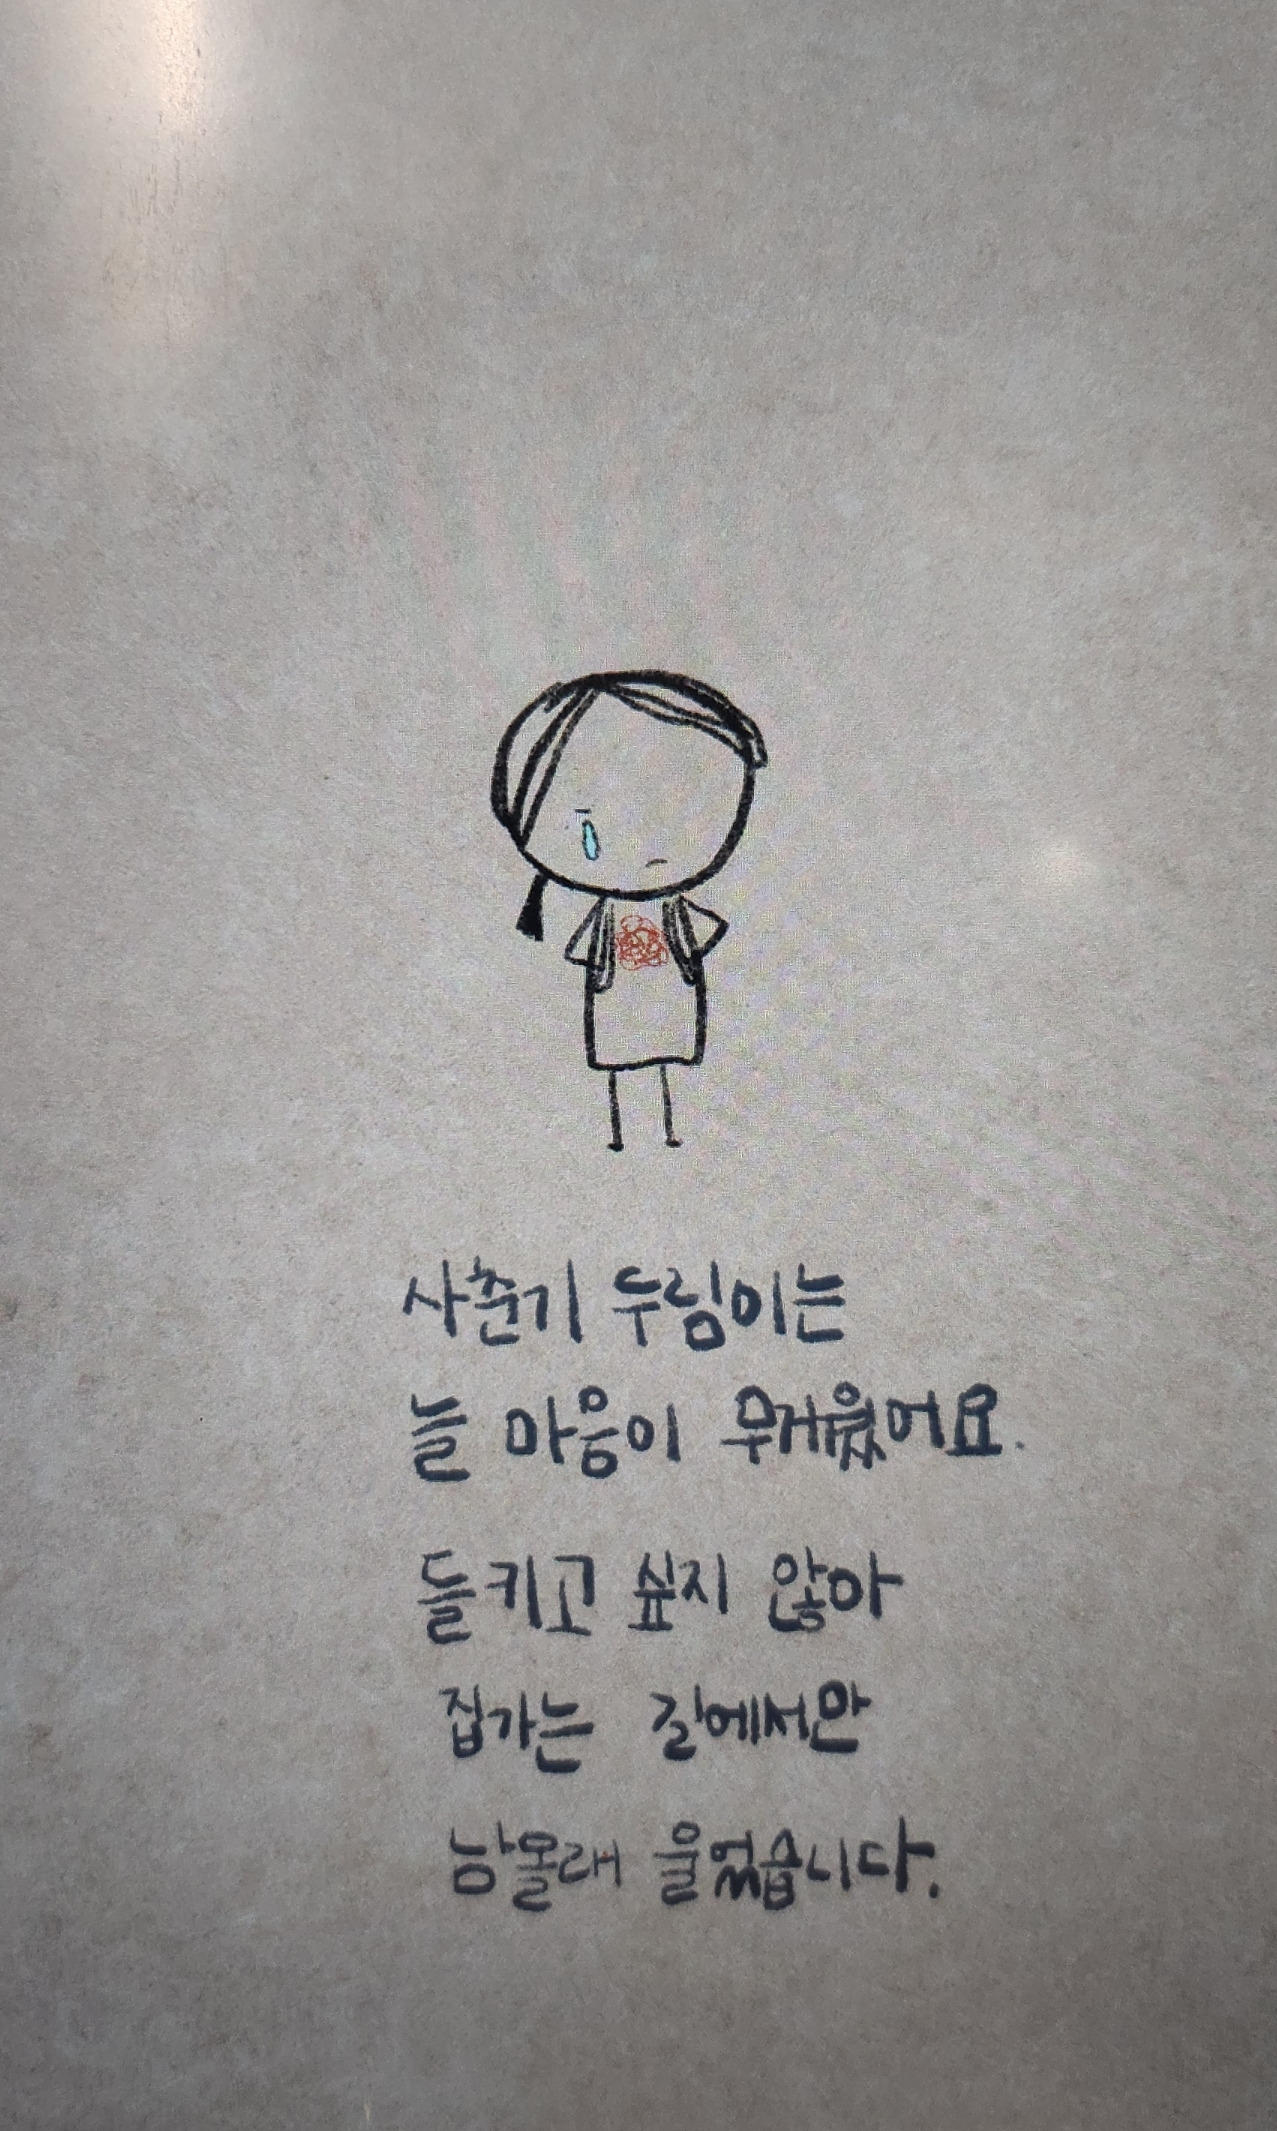 사춘기 두림이는
늘 마음이 무거웠어요.
들키고 싶지 않아
집가는 길에서만
남몰래 울었습니다.